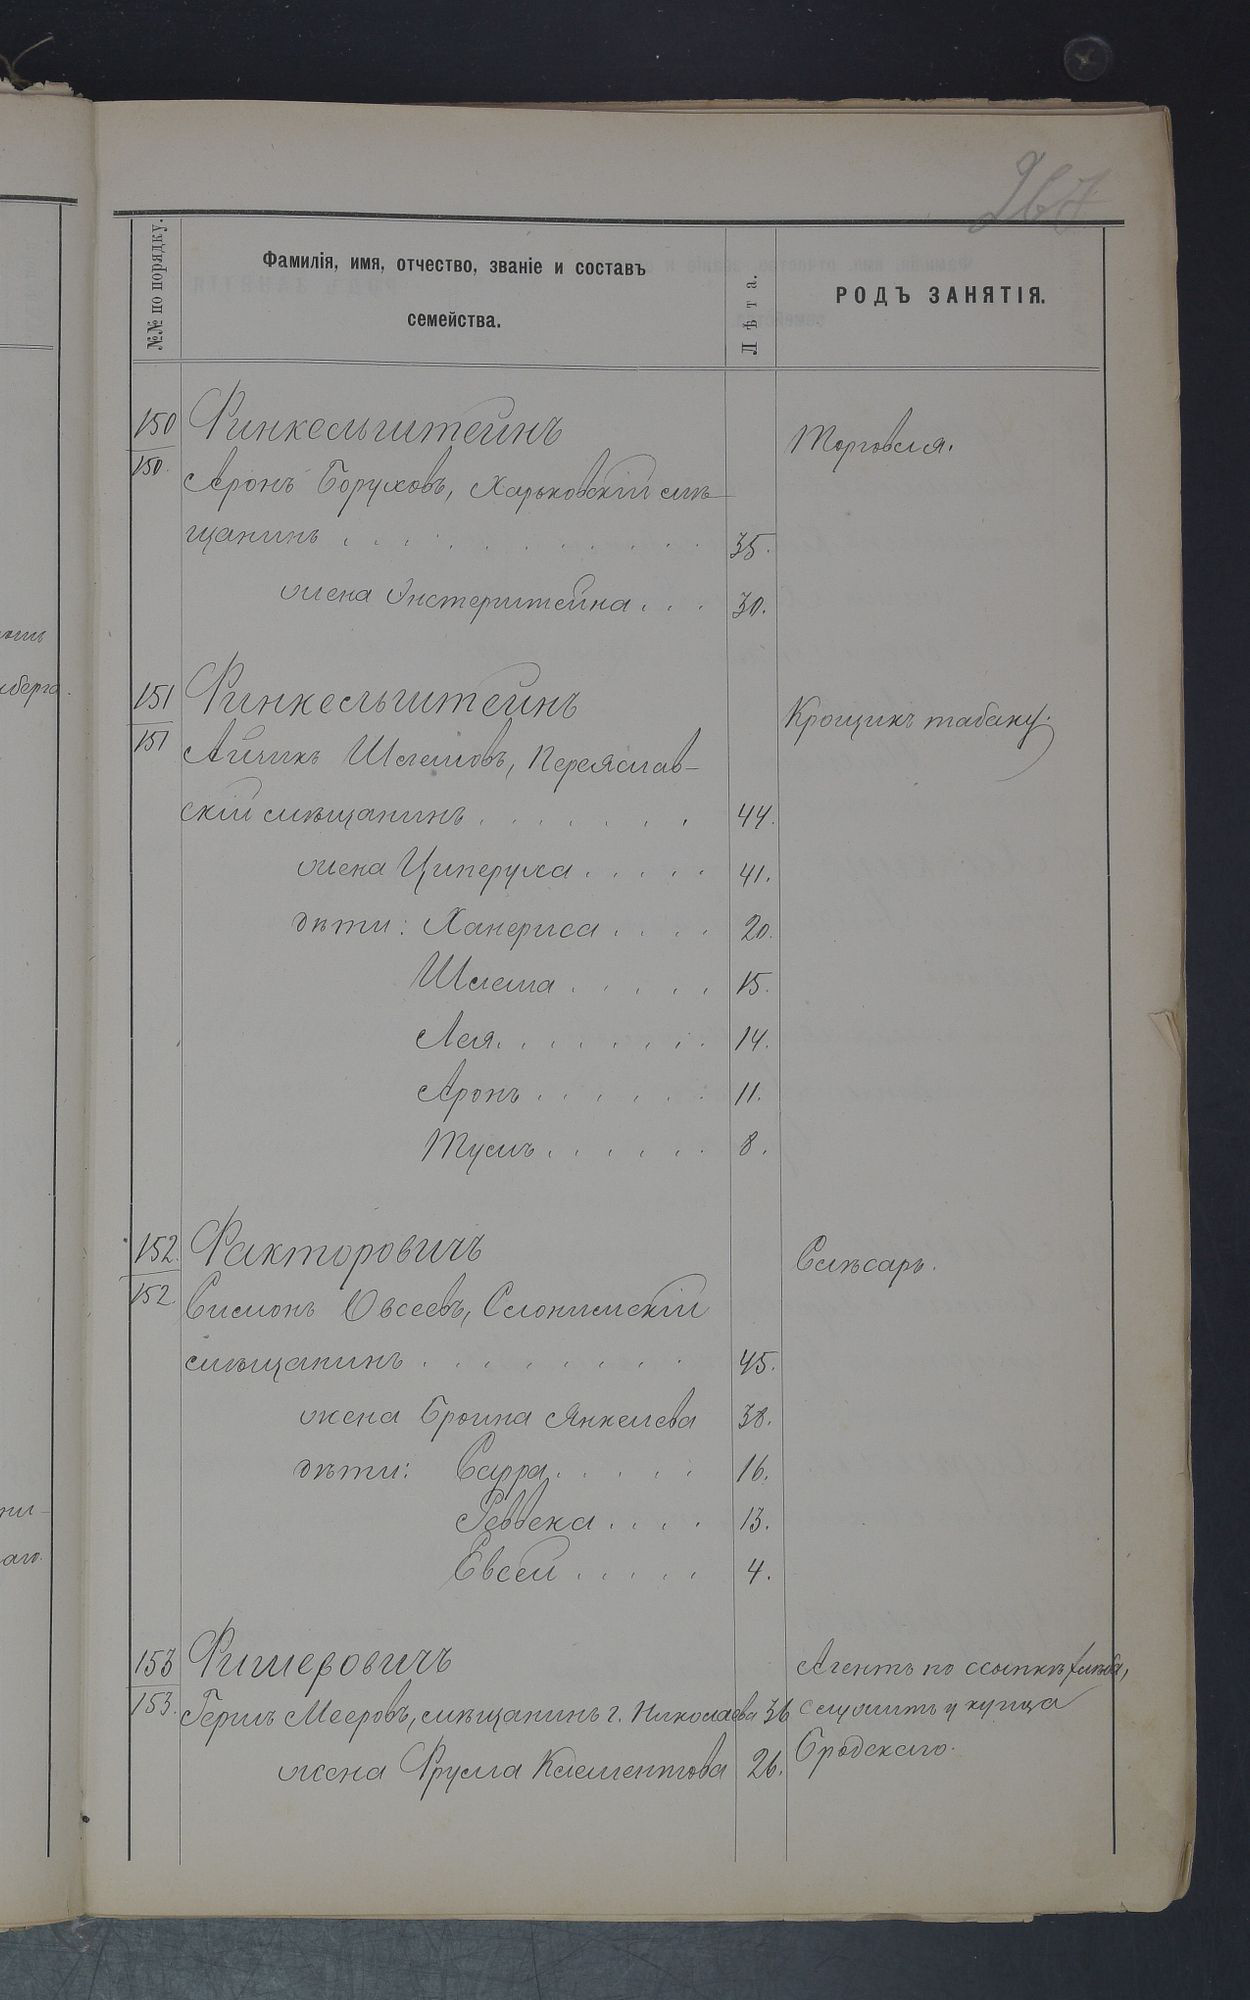 267
№№ по порядку.
Фамилія, имя, отчество, званіе и составъ
семейства.
Лѣта.
РОДЪ ЗАНЯТІЯ.
150 Финкельштейнъ
Торговля.
150. Аронъ Боруховъ, Харьковскій мѣ-
щанинъ . . . . . . . . . . . . 35.
жена Энстерштейна . . . 30.
151 Финкельштейнъ
Крошикъ табаку.
151 Айчикъ Шлемовъ, Переяслав-
скій мѣщанинъ . . . . . . . 44.
жена Циперуха . . . . . 41.
дѣти: Ханериса . . . . 20.
Шлема . . . . . 15.
Лея . . . . . . . 14.
Аронъ . . . . . . 11.
Тусль . . . . . . 8.
152. Факторовичъ
Слѣсарь.
152. Симонъ Овсеевъ, Слонимскій
мѣщанинъ . . . . . . . . 45.
жена Броина Янкелева 38.
дѣти: Сарра . . . . . 16.
Реввека . . . . 13.
Евсей . . . . . 4.
153 Фишеровичъ
Агентъ по ссыпкѣ хлѣба,
153. Гершъ Мееровъ, мѣщанинъ г. Николаева 36
служитъ у купца
Бродскаго.
жена Фрума Клементова 26.